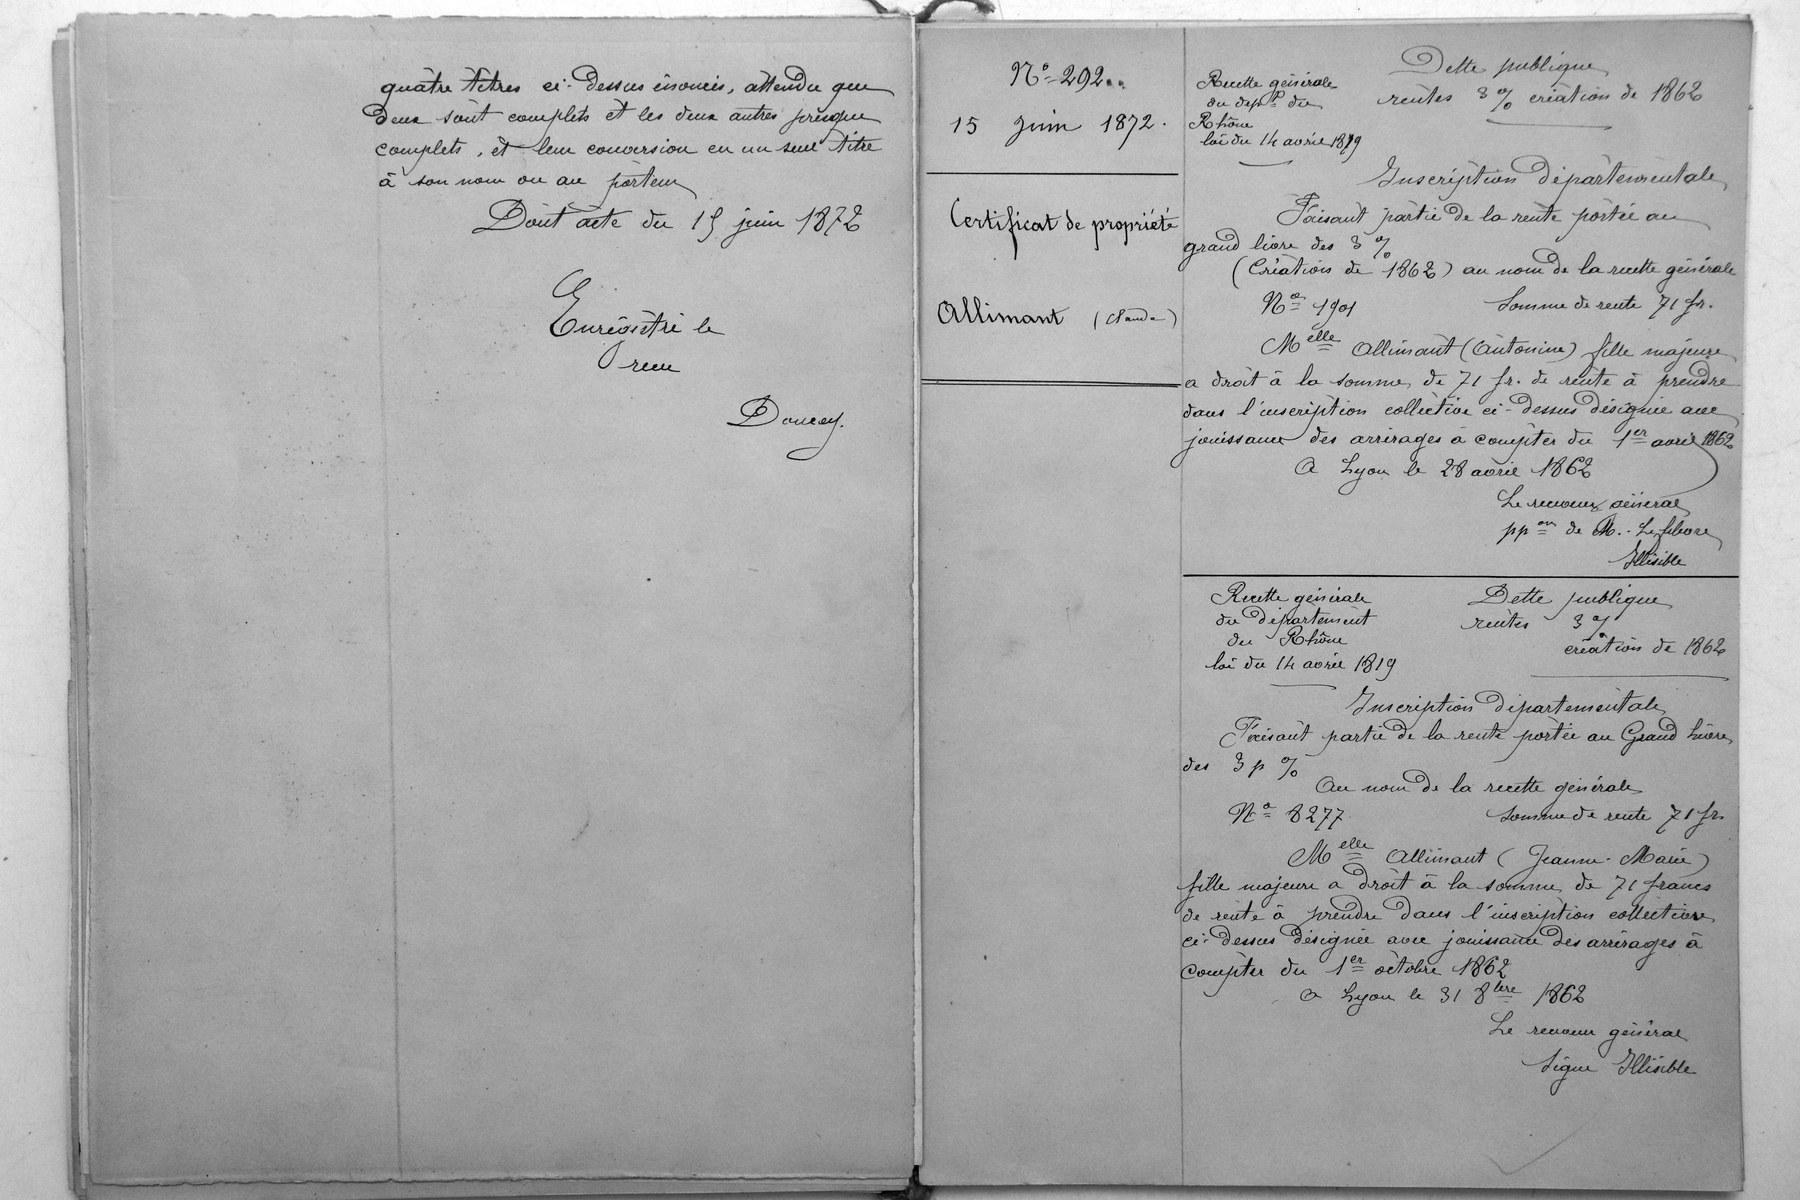 quatre titres ci-dessus énoncés, attendu que
deux sont complets et les deux autres presque
complets, et leur conversion en un seul titre
à son nom ou au porteur
Dont acte du 15 juin 1872
Enregistré le
recu
Doucey.
N° 292.
15 Juin 1872.
Certificat de propriété
Allimant (Claude)
Recette générale
du depᵗ du
Rhône
loi du 14 avril 1819
Dette publique
rentes 3 % création de 1862
Inscription départementale
Faisant partie de la rente portée au
grand livre des 3 %
(Création de 1862) au nom de la recette générale
N° 1901 Somme de rente 71 fr.
Melle Allimant (Antonine) fille majeure
a droit à la somme de 71 fr. de rente à prendre
dans l'inscription collective ci-dessus désignée avec
jouissance des arrérages à compter du 1er avril 1862
A Lyon le 28 avril 1862
Le receveur général
ppon de M. Lefebvre
Illisible
Recette générale
du département
du Rhône
loi du 14 avril 1819
Dette publique
rentes 3 %
création de 1862
Inscription départementale
Faisant partie de la rente portée au Grand Livre
des 3 p %
Au nom de la recette générale
N° 8277 Somme de rente 71 fr.
Melle Allimant (Jeanne-Marie)
fille majeure a droit à la somme de 71 francs
de rente à prendre dans l'inscription collective
ci-dessus désignée avec jouissance des arrérages à
compter du 1er octobre 1862
a Lyon le 31 8bre 1862
Le receveur général
Signé Illisible